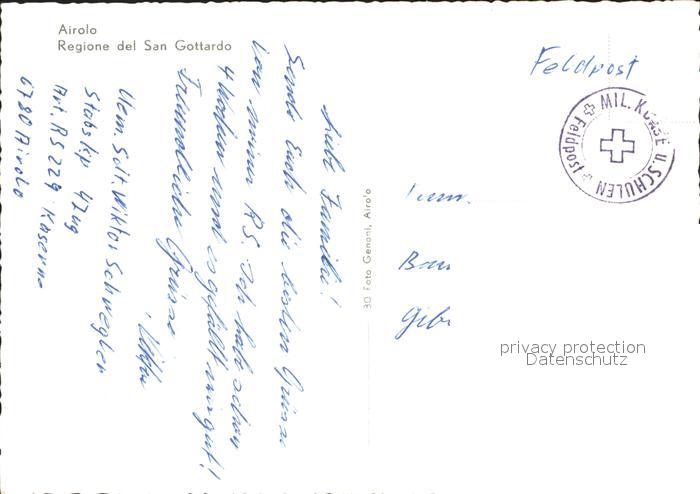 Airolo
Regione del San Gottardo
Feldpost
MIL. KURSE U. SCHULEN
Feldpost
Liebe Familie!
Sende Euch die besten Grüsse
von meiner RS. Ich habe schon
4 Wochen und es gefällt mir gut!
Freundliche Grüsse
Viktor
Uem. Sdt. Wiktor Schwegler
Stabskp 4 Zug
Art. RS 229 Kaserne
6780 Airolo
30 Foto Genoni, Airolo
Fam.
privacy protection
Datenschutz